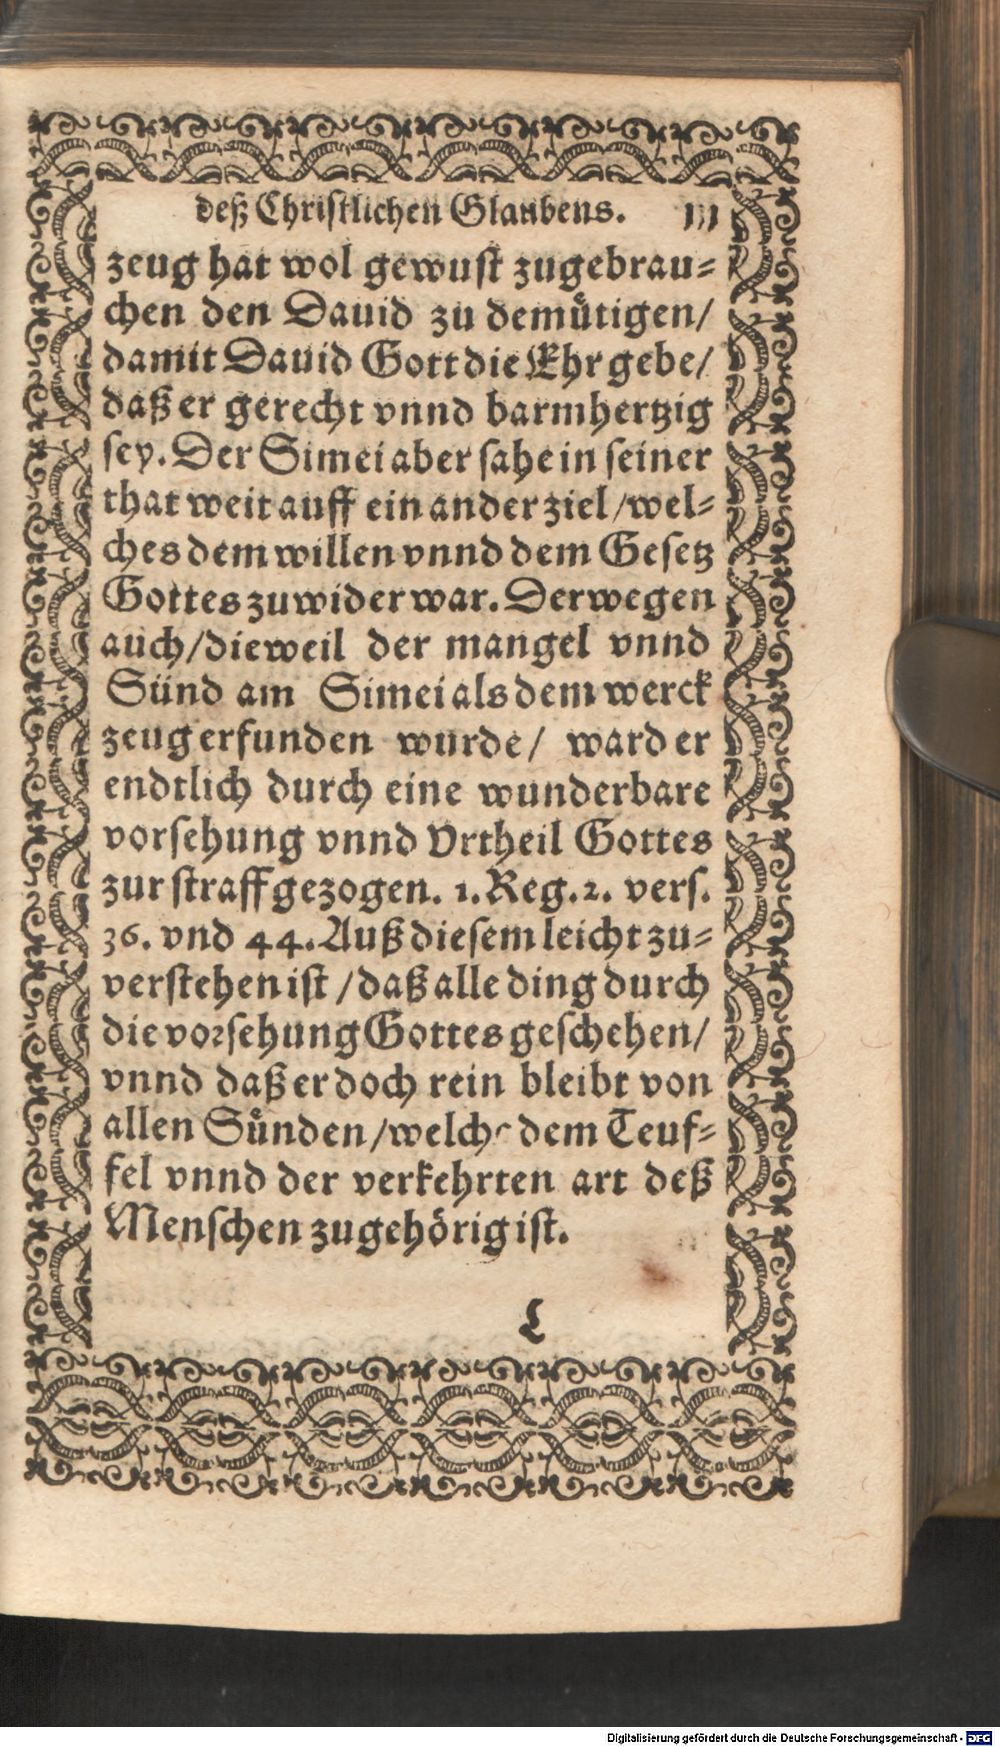 deß Christlichen Glaubens. 111
zeug hat wol gewust zugebrau-
chen den Dauid zu demuͤtigen/
damit Dauid Gott die Ehr gebe/
daß er gerecht vnnd barmhertzig
sey. Der Simei aber sahe in seiner
that weit auff ein ander ziel/wel-
ches dem willen vnnd dem Gesetz
Gottes zuwider war. Derwegen
auch/dieweil der mangel vnnd
Sünd am Simei als dem werck
zeug erfunden wurde/ ward er
endtlich durch eine wunderbare
vorsehung vnnd Vrtheil Gottes
zur straff gezogen. 1. Reg. 2. vers.
36. vnd 44. Auß diesem leicht zu-
verstehen ist/daß alle ding durch
die vorsehung Gottes geschehen/
vnnd daß er doch rein bleibt von
allen Suͤnden/welche dem Teuf-
fel vnnd der verkehrten art deß
Menschen zugehoͤrig ist.
L
Digitalisierung gefördert durch die Deutsche Forschungsgemeinschaft - DFG